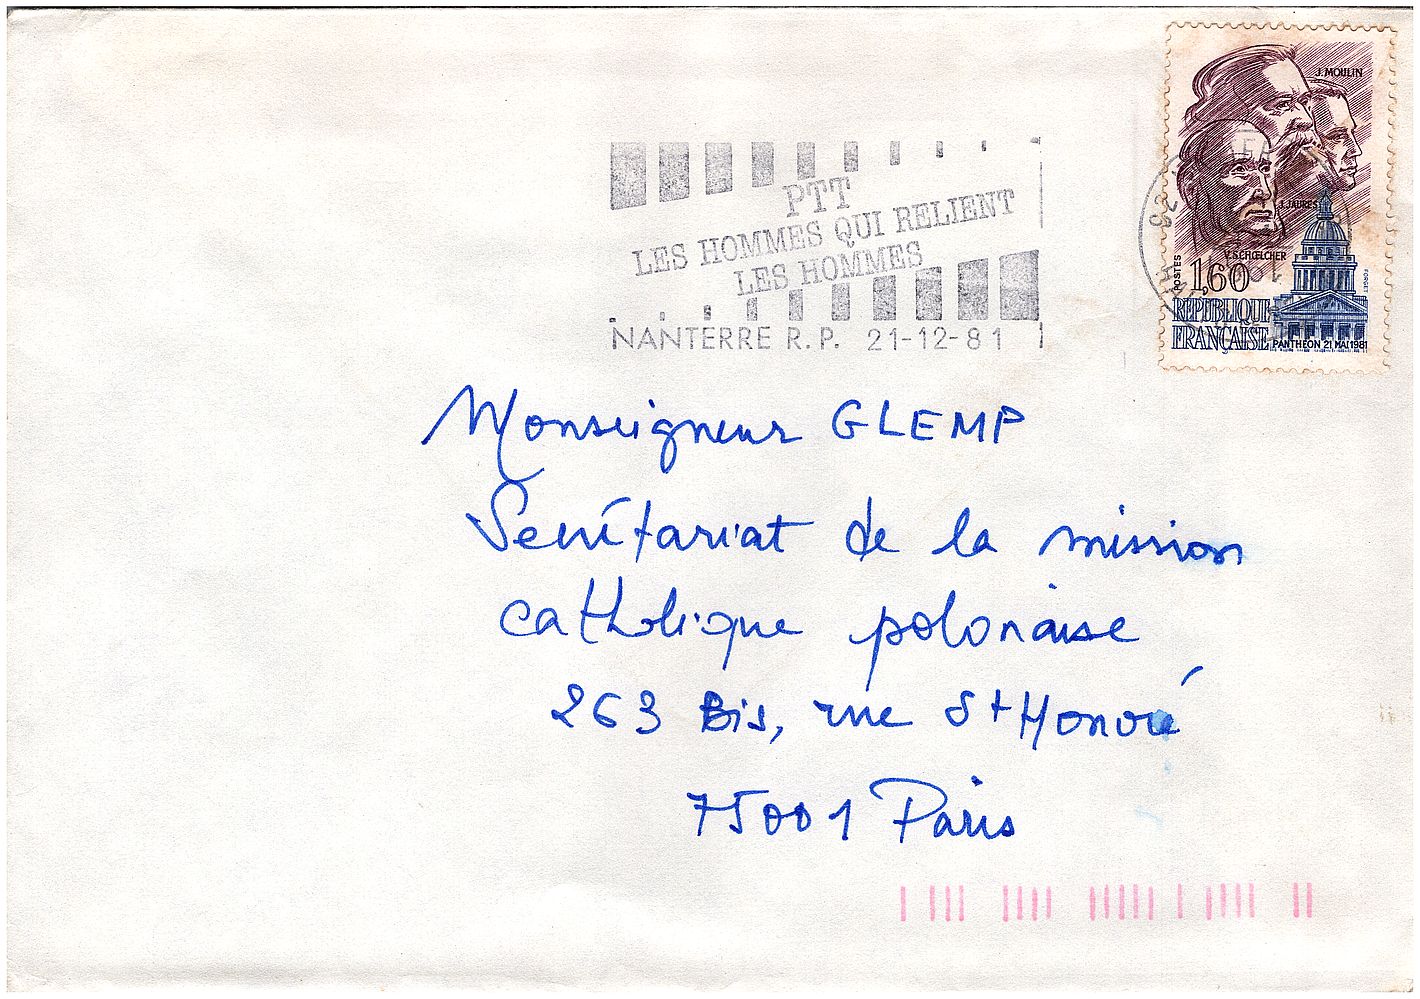 J. MOULIN
J. JAURES
V. SCHŒLCHER
POSTES
1,60
FORGET
REPUBLIQUE
FRANÇAISE
PANTHEON 21 MAI 1981
PTT
LES HOMMES QUI RELIENT
LES HOMMES
NANTERRE R. P. 21-12-81
Monseigneur GLEMP
Secrétariat de la mission
catholique polonaise
263 Bis, rue St Honoré
75001 Paris